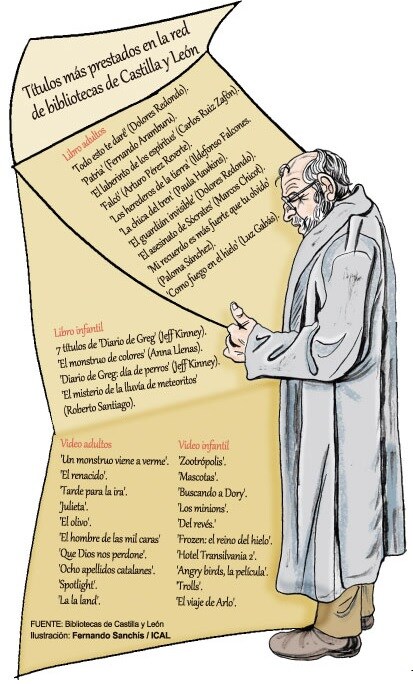 Títulos más prestados en la red
de bibliotecas de Castilla y León
Libro adultos
'Todo esto te daré' (Dolores Redondo).
'Patria' (Fernando Aramburu).
'El laberinto de los espíritus' (Carlos Ruiz Zafón).
'Falcó' (Arturo Pérez Reverte).
'Los herederos de la tierra' (Ildefonso Falcones.
'La chica del tren' (Paula Hawkins).
'El guardián invisible' (Dolores Redondo).
'El asesinato de Sócrates' (Marcos Chicot).
'Mi recuerdo es más fuerte que tu olvido
(Paloma Sánchez).
'Como fuego en el hielo' (Luz Gabás).
Libro infantil
7 títulos de 'Diario de Greg' (Jeff Kinney).
'El monstruo de colores' (Anna Llenas).
'Diario de Greg: día de perros' (Jeff Kinney)
'El misterio de la lluvia de meteoritos'
(Roberto Santiago).
Video adultos
'Un monstruo viene a verme'.
'El renacido'.
'Tarde para la ira'.
'Julieta'.
'El olivo'.
'El hombre de las mil caras'
'Que Dios nos perdone'.
'Ocho apellidos catalanes'.
'Spotlight'.
'La la land'.
Video infantil
'Zootrópolis'.
'Mascotas'.
'Buscando a Dory'.
'Los minions'.
'Del revés.'
'Frozen: el reino del hielo'.
'Hotel Transilvania 2'.
'Angry birds, la película'.
'Trolls'.
'El viaje de Arlo'.
FUENTE: Bibliotecas de Castilla y León
Ilustración: Fernando Sanchís / ICAL